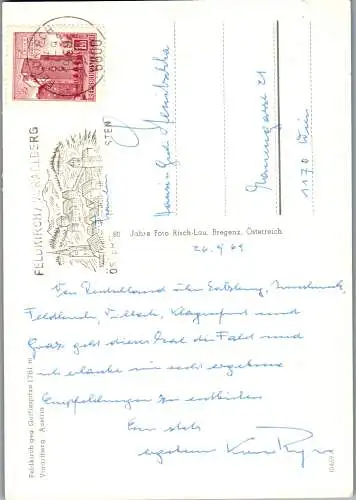 FELDKIRCH / VORARLBERG
6800
Hans u. Gerd
1170 Wien
80 Jahre Foto Risch-Lau, Bregenz, Österreich.
26. 9. 69
Von Deutschland über Salzburg, Innsbruck,
Feldkirch, Villach, Klagenfurt und
Graz geht dieses Mal die Fahrt und
ich erlaube mir recht ergebene
Empfehlungen zu entbieten
Ihr stets
ergebener
Feldkirch geg. Gurtisspitze 1781 m
Vorarlberg Austria